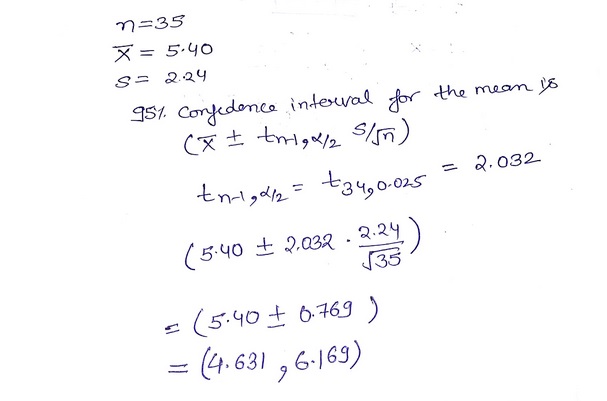 n=35
x̅ = 5.40
s= 2.24
95%. Confidence interval for the mean is
(x̅ ± tn-1,α/2 S/√n)
tn-1,α/2 = t34,0.025 = 2.032
(5.40 ± 2.032 · 2.24/√35)
= (5.40 ± 0.769 )
= (4.631 , 6.169)